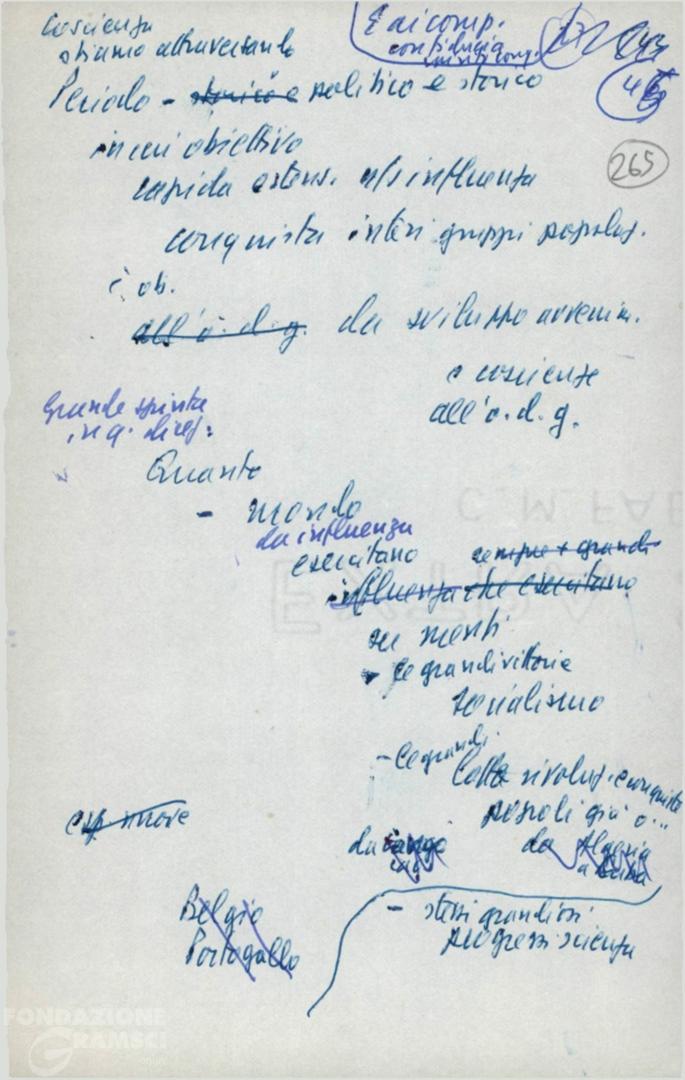 Coscienza
stiamo attraversando
E ai comp.
confiducia
265
Periodo - storico e politico e storico
in cui obiettivo
rapida estens. n/s influenza
conquista interi gruppi popolaz.
è ob.
all'o. d. g. da sviluppo avvenim.
e coscienze
all'o. d. g.
Grande spinta
in q. direz:
Quanto
- mondo
da influenza
esercitano sempre + grandi
influenza che esercitano
su menti
- le grandi vittorie
socialismo
- le grandi
lotte rivoluz. e conquiste
popoli già o...
esp. nuove
da Congo da Algeria
a Cuba
Belgio
Portogallo
- stessi grandiosi
progressi scienza
C. M. FAB
EXTRA
FONDAZIONE
GRAMSCI